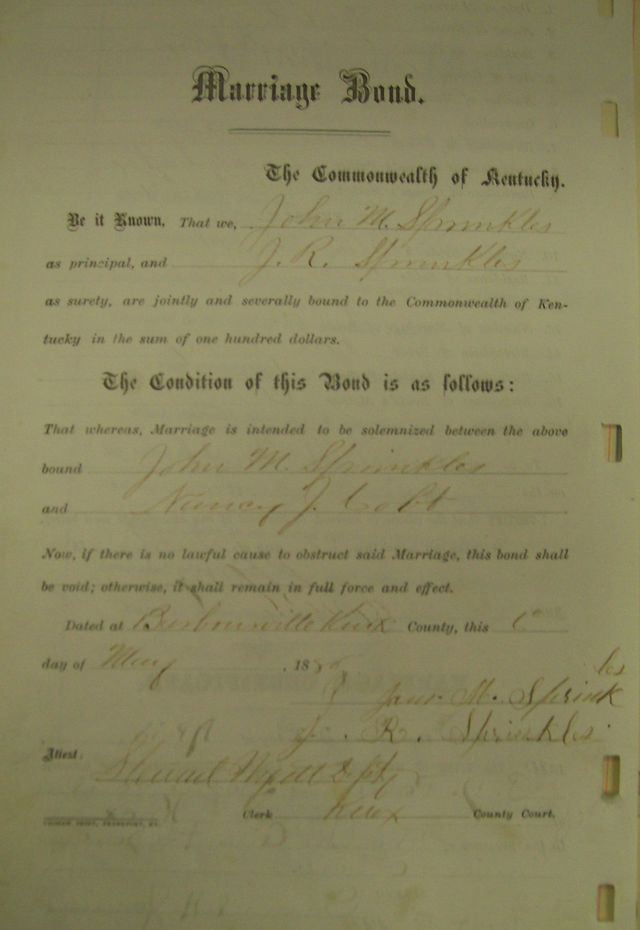 Marriage Bond.
The Commonwealth of Kentucky.
Be it Known, That we, John M. Sprinkles
as principal, and J. R. Sprinkles
as surety, are jointly and severally bound to the Commonwealth of Ken-
tucky in the sum of one hundred dollars.
The Condition of this Bond is as follows:
That whereas, Marriage is intended to be solemnized between the above
bound John M. Sprinkles
and Nancy J.
Now, if there is no lawful cause to obstruct said Marriage, this bond shall
be void; otherwise, it shall remain in full force and effect.
Dated at Barbourville Knox County, this 6
day of May , 188
M. Sprinkles
J. R. Sprinkles
Attest:
Dpty
Clerk Knox County Court.